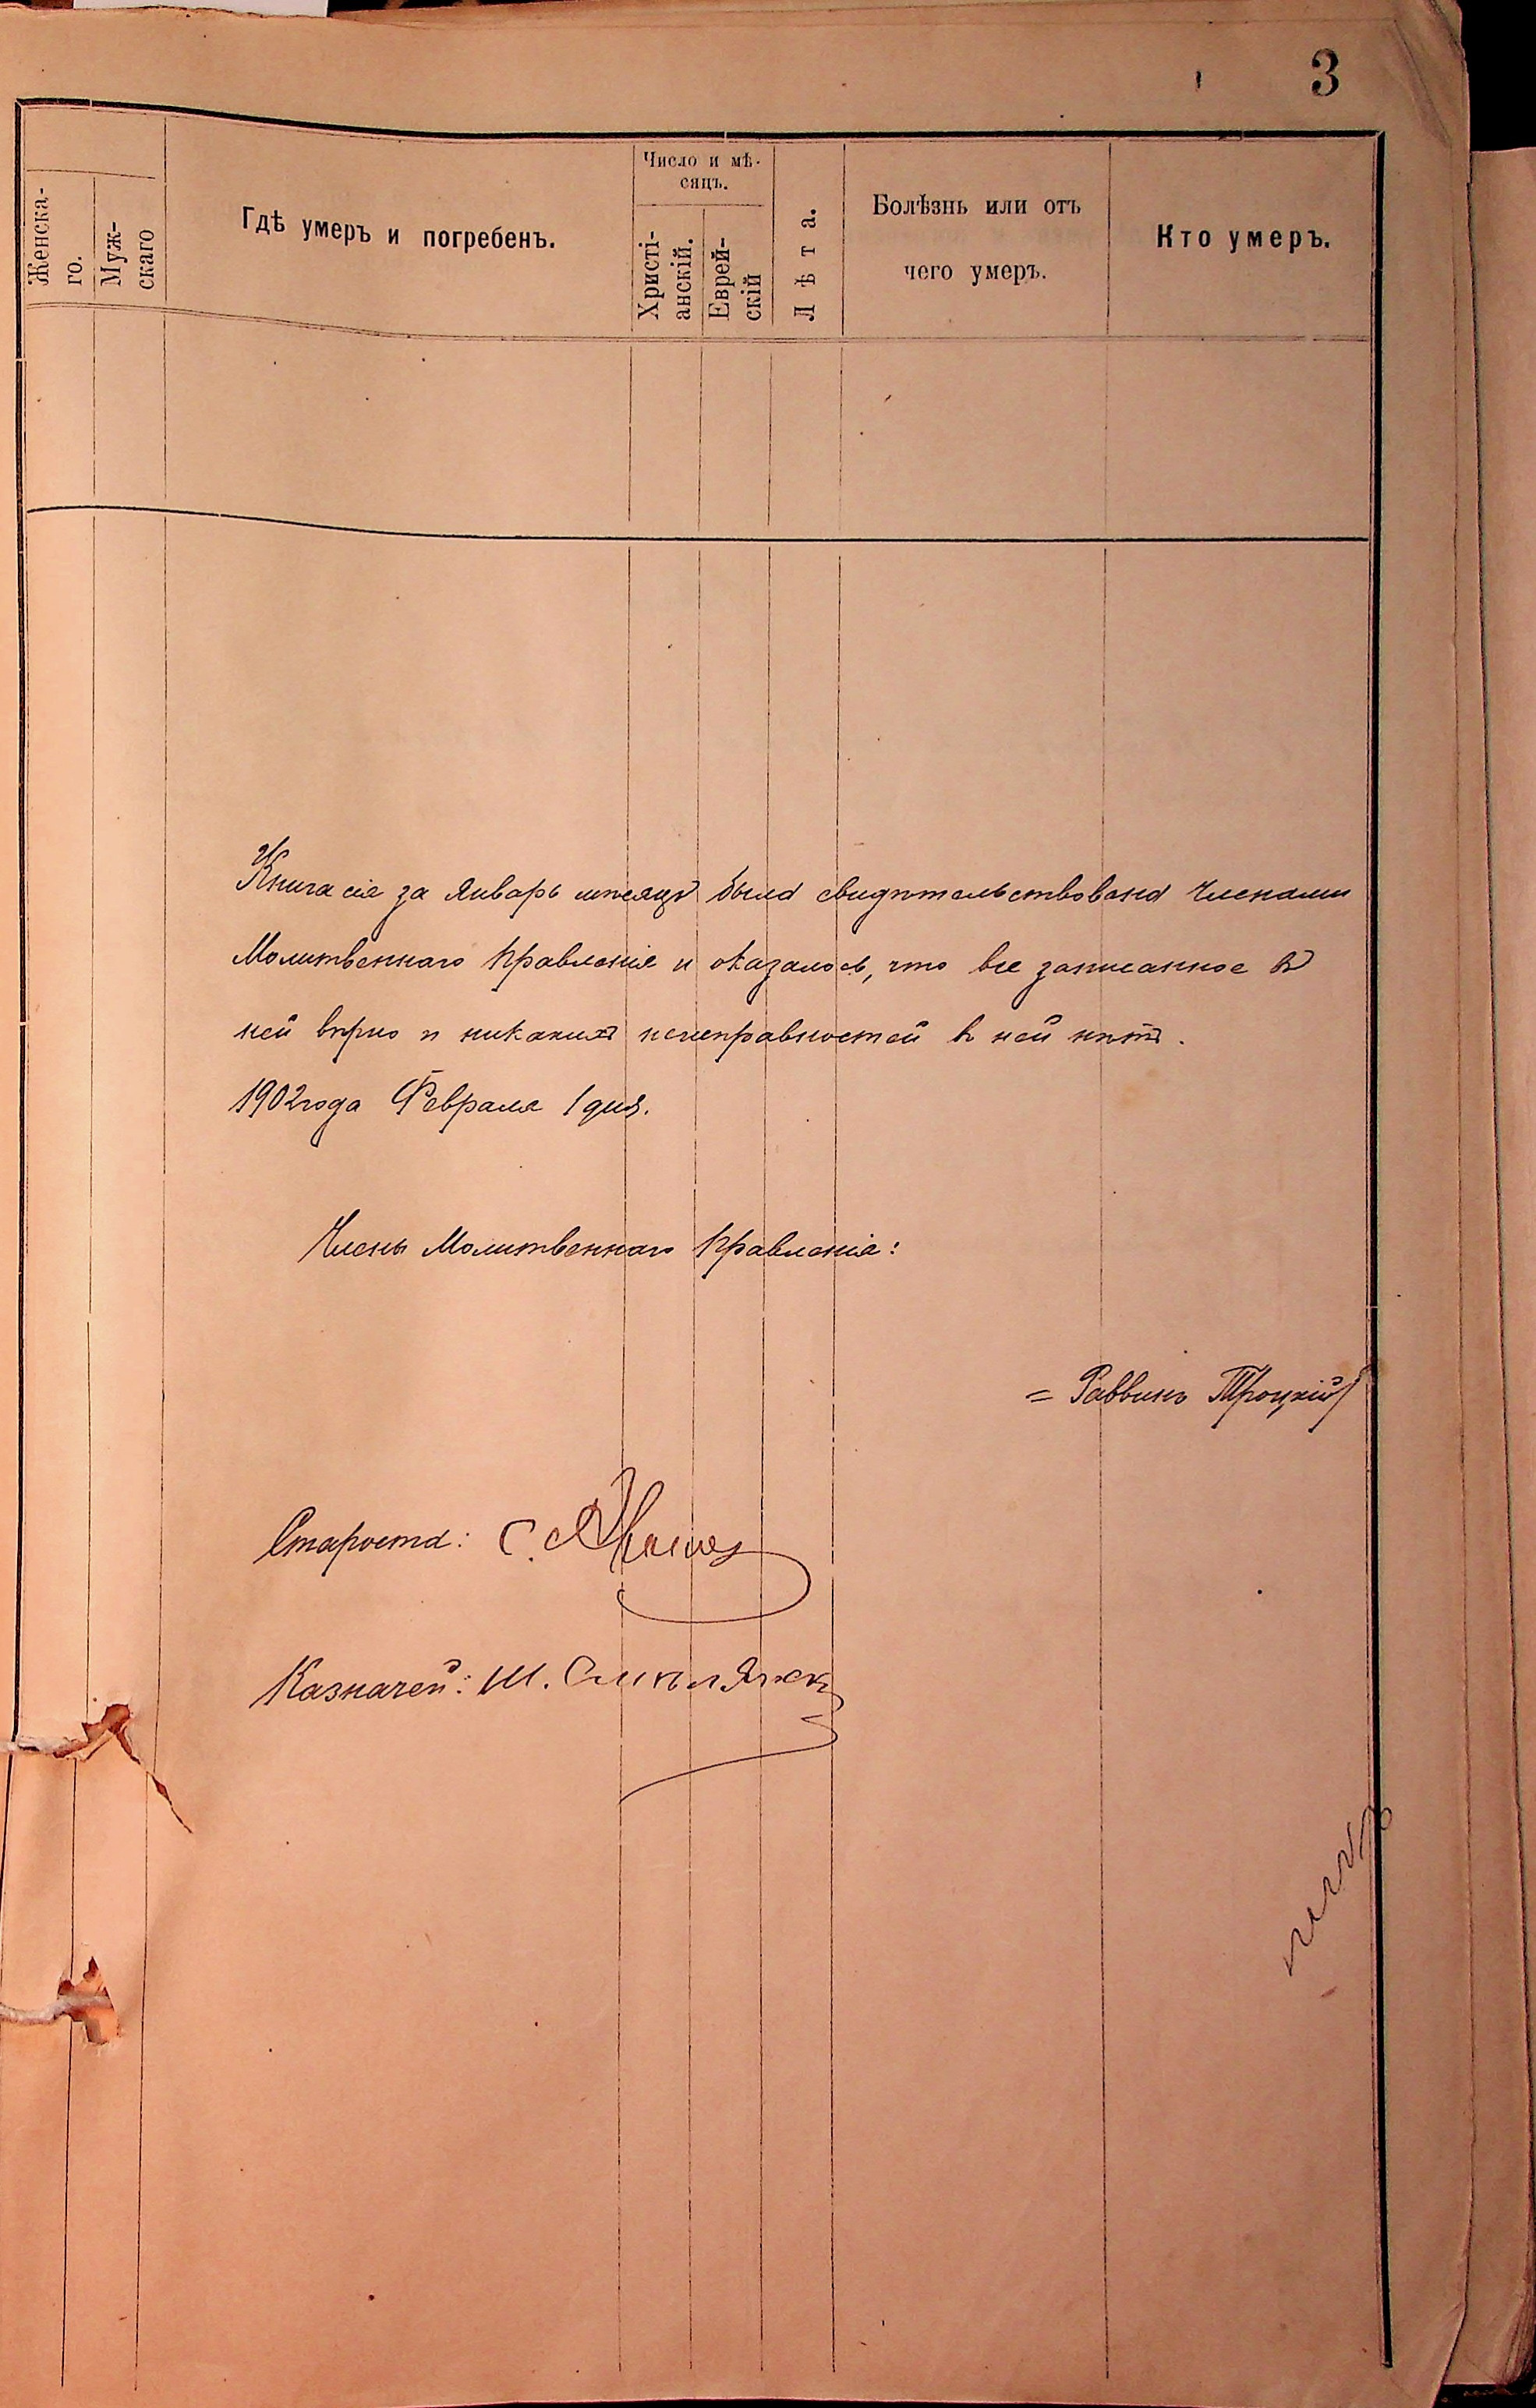 3
Женска-
го.
Муж-
скаго
Гдѣ умеръ и погребенъ.
Число и мѣ-
сяцъ.
Христі-
анскій.
Еврей-
скій
Лѣта.
Болѣзнь или отъ
чего умеръ.
Кто умеръ.
Книга сія за Январь мѣсяцъ была свидѣтельствована Членами
Молитвеннаго Правленія и оказалось, что все записанное въ
ней вѣрно и никакихъ неисправностей въ ней нѣтъ.
1902 года Февраля 1 дня.
Члены Молитвеннаго Правленія:
= Раввинъ Троцкій
Староста: С.
Казначей: Ш.